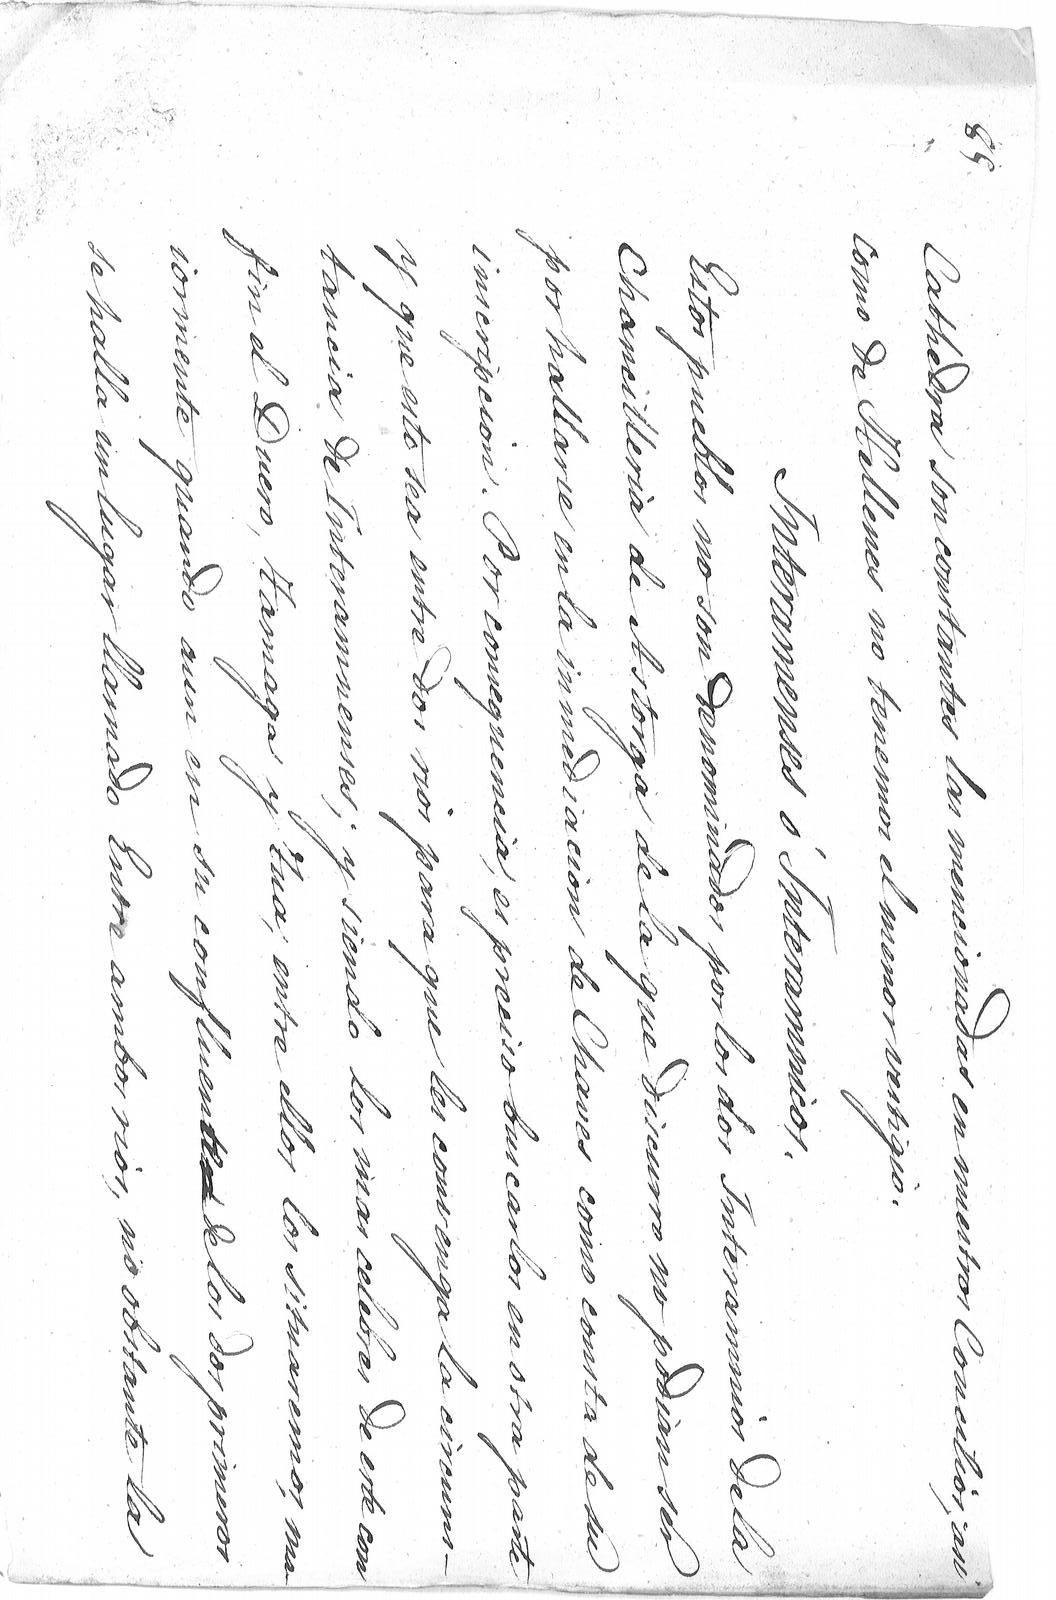 89
Cathedra son constantes las mencionadas en nuestros Concilios, asi
como de Hellenes no tenemos el menor vestigio.
Interamenses ó Interamnicos.
Estos pueblos no son denominados por los dos Interamnios de la
Chancilleria de Astorga de la que discurro no podian ser
por hallarse en la inmediacion de Chaves como consta de su
inscripcion. Por consequencia, es preciso buscarlos en otra parte
y que esto sea entre dos rios para que les convenga la circuns-
tancia de Interamnenses; y siendo los mas celebres de este con
fin el Duero, Tamaga y Tua, entre ellos los situaremos, ma-
iormente quando aun en su confluente de los dos primeros
se halla un lugar llamado Entre ambos rios, no obstante la